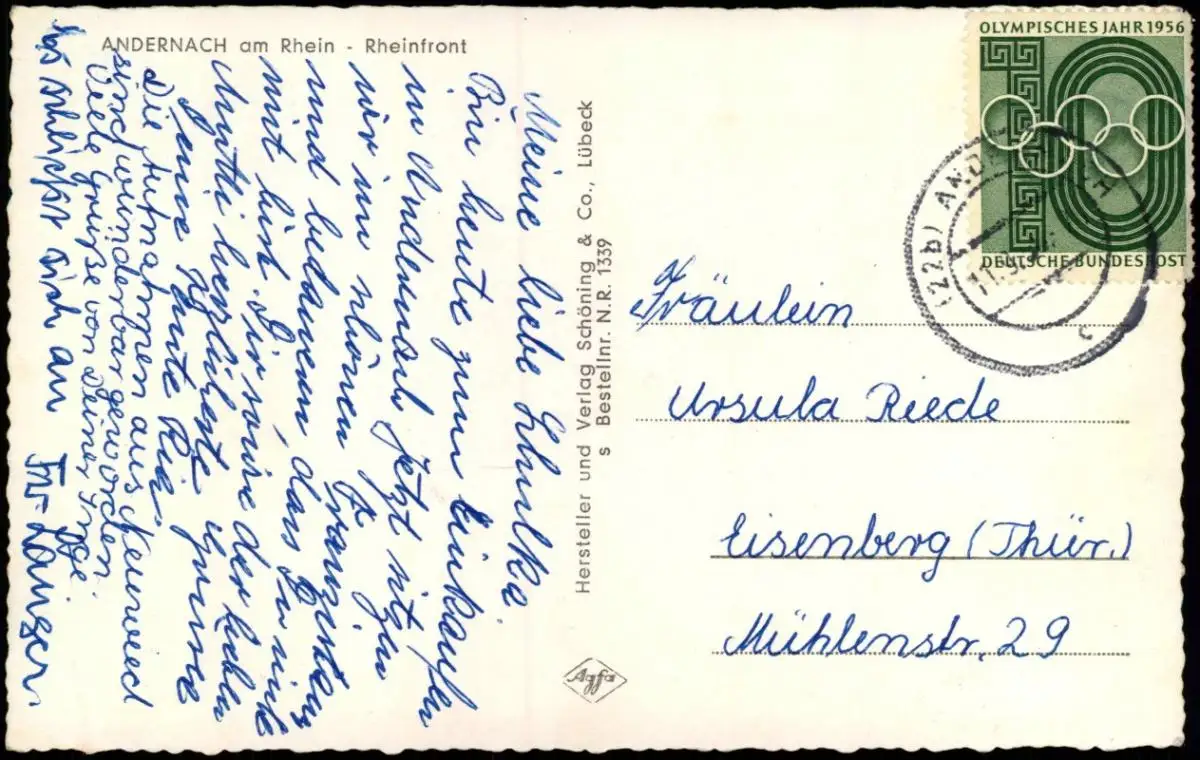 ANDERNACH am Rhein - Rheinfront
Meine liebe
Bin heute zum Einkaufen
in Andernach. Jetzt sitzen
wir im schönen Franziskus
und bedauern, dass Du nicht
mit bist. Dir sowie der lieben
Mutti herzlichste Grüsse
Deine Tante Ria.
Die Aufnahmen aus Neuwied
sind wunderbar geworden.
Viele Grüße von Deiner Inge
Es schließt sich an
Hersteller und Verlag Schöning & Co., Lübeck
s Bestellnr. N.R. 1339
Agfa
OLYMPISCHES JAHR 1956
DEUTSCHE BUNDESPOST
(22b) AND
c
Fräulein
Ursula Riede
Eisenberg (Thür.)
Mühlenstr. 29